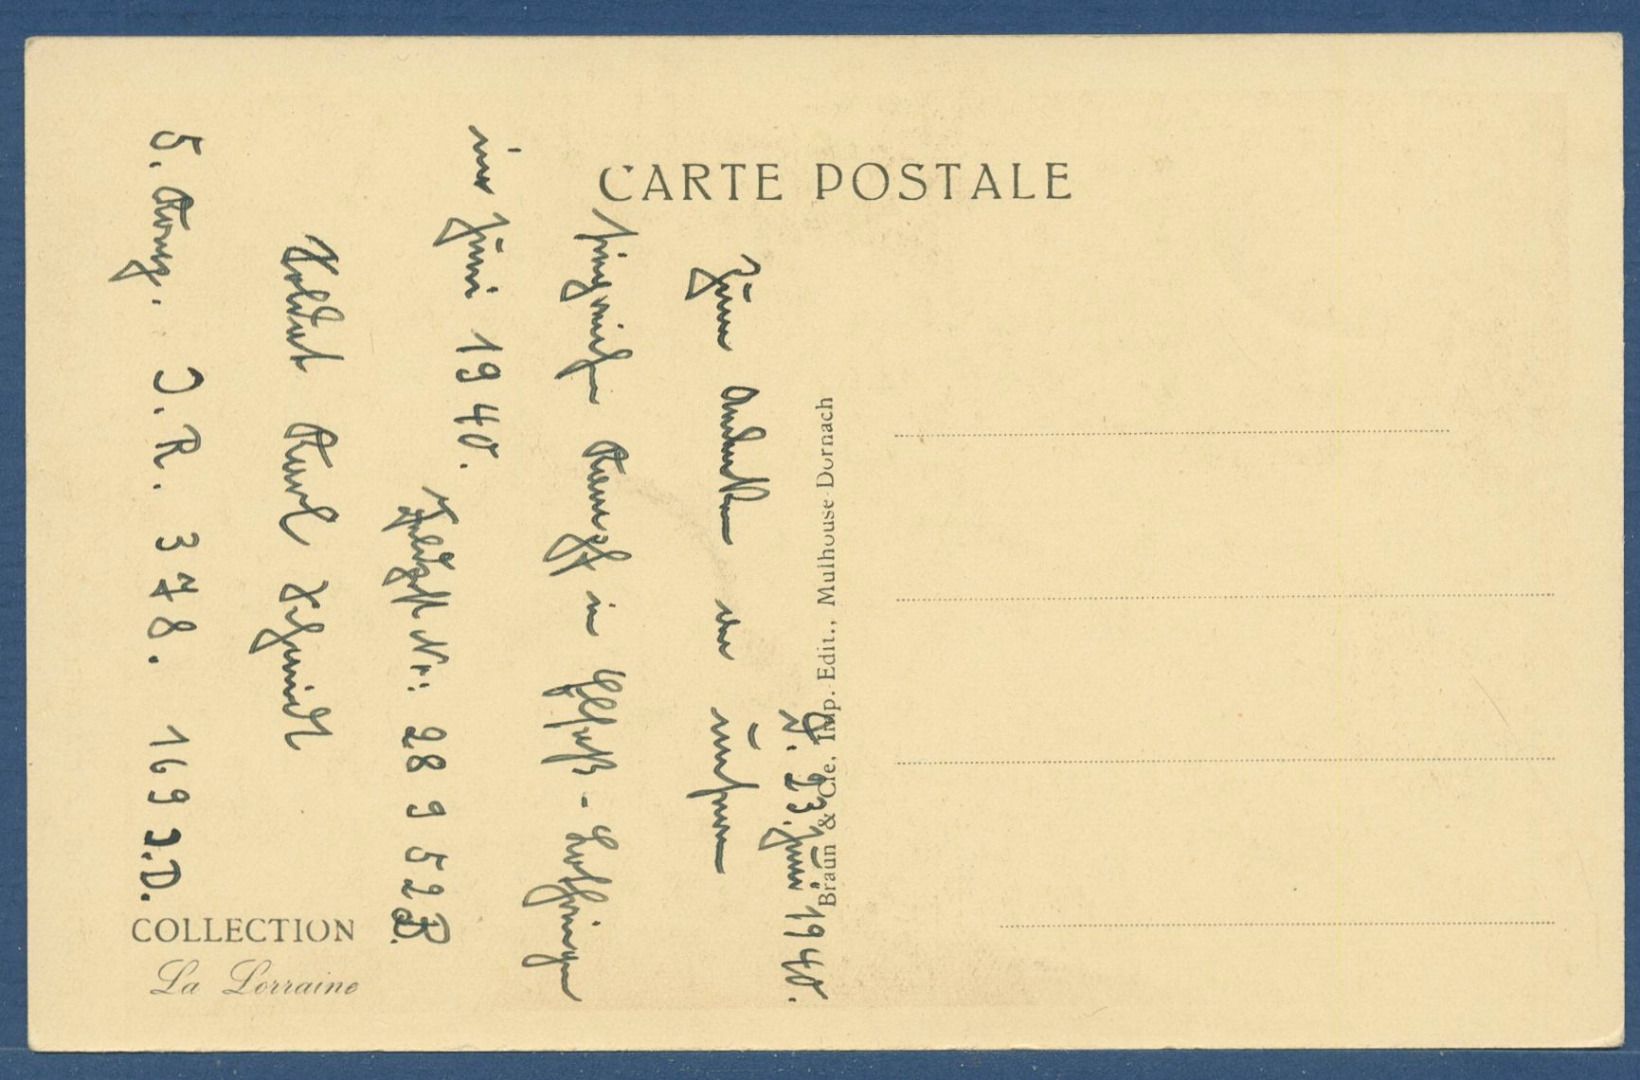 CARTE POSTALE
Braun & Cie, Imp.-Edit., Mulhouse-Dornach
COLLECTION
La Lorraine
23. Juni 1940.
Zum Andenken an unseren
siegreichen Kampf in Elsaß-Lothringen
im Juni 1940.
Feldpost Nr: 28952B.
Soldat Karl Schmidt
5. Komp. J.R. 378. 169 J.D.